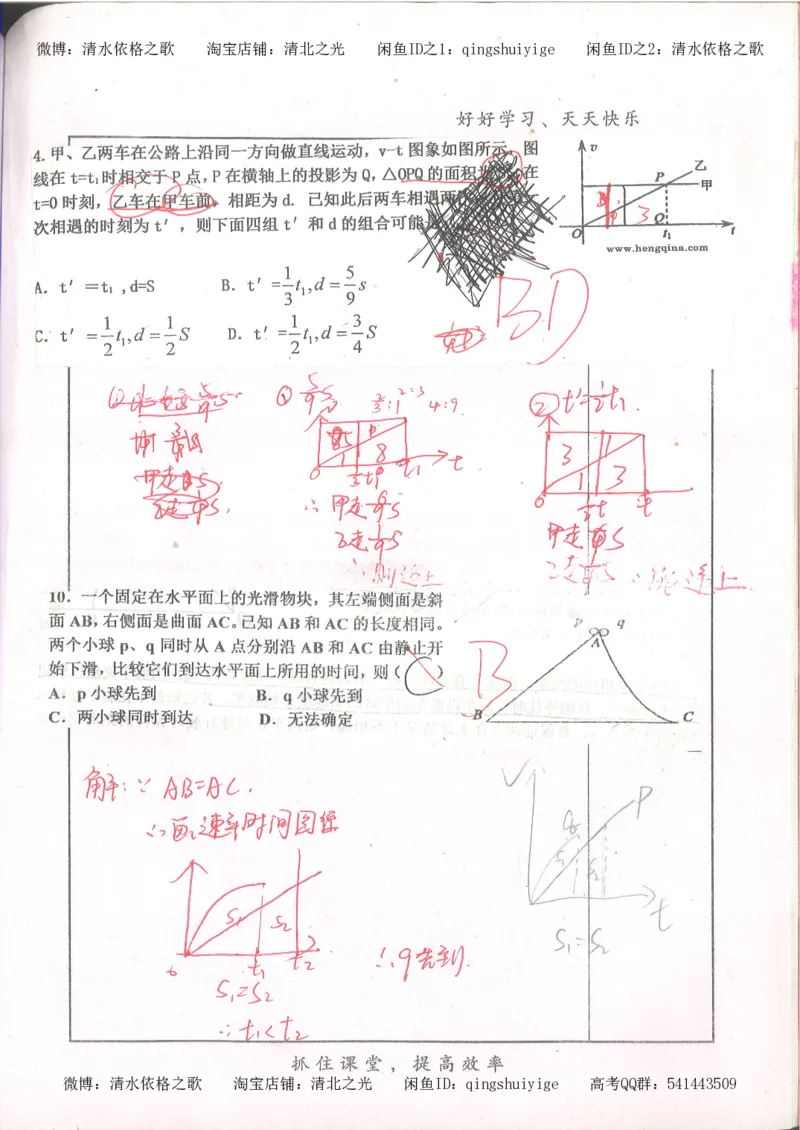 微博：清水依格之歌 淘宝店铺：清北之光 闲鱼ID之1：qingshuiyige 闲鱼ID之2：清水依格之歌
好好学习、天天快乐
4.甲、乙两车在公路上沿同一方向做直线运动，v-t图象如图所示，图
线在t=t₁时相交于P点，P在横轴上的投影为Q，△OPQ的面积 在
t=0时刻，乙车在甲车前，相距为d．已知此后两车相遇两
次相遇的时刻为t′，则下面四组t′和d的组合可能
v
P
乙
甲
O
Q
t₁
t
3
www.hengqina.com
A．t′＝t₁ ,d=S B．t′=1/3 t₁,d=5/9 s
C．t′=1/2 t₁,d=1/2 S D．t′=1/2 t₁,d=3/4 S
BD
① 5/9 S
2:3
4:9
② t'=1/2 t₁.
1 8
0 1/3 t₁ t₁ t
3 1
1 3
∴甲走
乙走1/9 S
∴能追上
10．一个固定在水平面上的光滑物块，其左端侧面是斜
面AB，右侧面是曲面AC。已知AB和AC的长度相同。
两个小球p、q同时从A点分别沿AB和AC由静止开
始下滑，比较它们到达水平面上所用的时间，则（C）
A．p小球先到 B．q小球先到
C．两小球同时到达 D．无法确定
B
p q
A
B C
解：∵AB=AC.
∴画速率时间图像
S₁ S₂
t₁ t₂
S₁=S₂
∴t₁<t₂
∴q先到.
V
q
P
S₁ S₂
t
S₁=S₂
抓住课堂，提高效率
微博：清水依格之歌 淘宝店铺：清北之光 闲鱼ID：qingshuiyige 高考QQ群：541443509